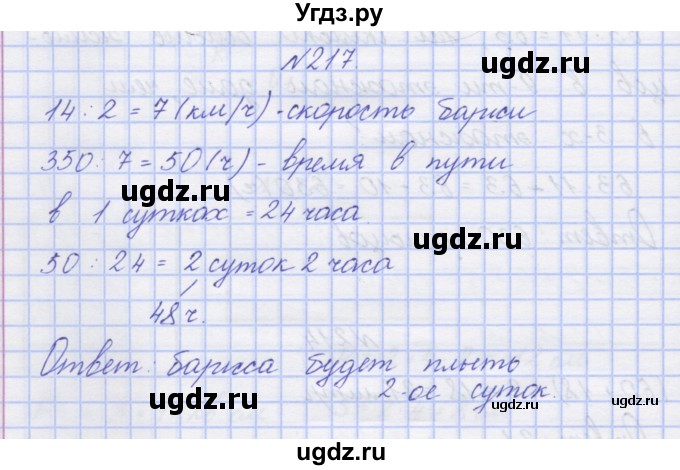 Угдз.ру
N217.
14 : 2 = 7 (км/ч) - скорость баржи
350 : 7 = 50 (ч) - время в пути
в 1 сутках = 24 часа.
50 : 24 = 2 суток 2 часа
48 ч.
Ответ: баржа будет плыть
2-ое суток.
ugdz.ru
ugdz.ru
ugdz.ru
ugdz.ru
ugdz.ru
ugdz.ru
ugdz.ru
ugdz.ru